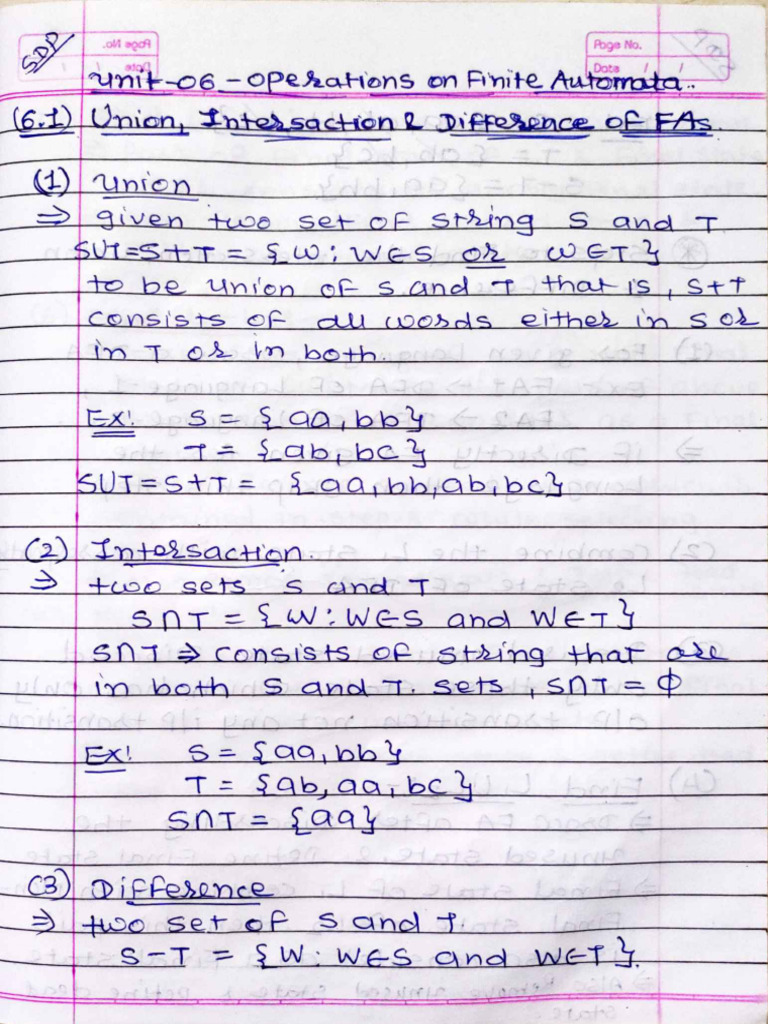 SDP
Page No.
Date / /
Unit-06 - Operations on Finite Automata..
(6.1) Union, Intersaction & Difference of FAs.
(1) Union
⇒ given two set of string S and T
SUT=S+T = {W : W∈S or W∈T}
to be union of S and T that is, S+T
consists of all words either in S or
in T or in both.
Ex! S = {aa, bb}
T = {ab, bc}
SUT=S+T = {aa, bb, ab, bc}
(2) Intersaction.
⇒ two sets S and T
S∩T = {W : W∈S and W∈T}
S∩T ⇒ consists of string that are
in both S and T. sets, S∩T = Φ
Ex! S = {aa, bb}
T = {ab, aa, bc}
S∩T = {aa}
(3) Difference
⇒ two set of S and T.
S-T = {W : W∈S and W∈T}.